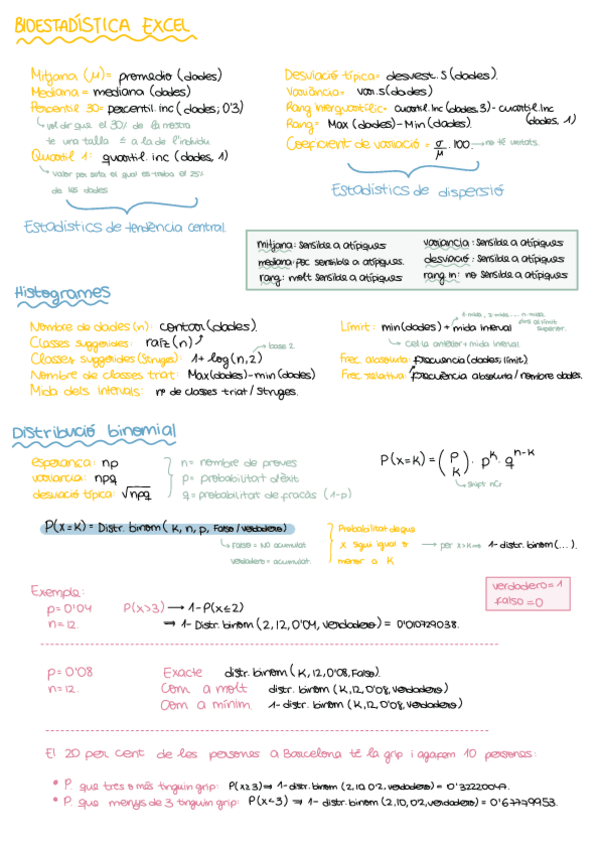 BIOESTADÍSTICA EXCEL
Mitjana (μ)= promedio (dades)
Mediana = mediana (dades)
Percentil 30= percentil.inc (dades; 0'3)
↳ vol dir que el 30% de la mostra
te una talla ≤ a la de l'individu
Quartil 1: quartil.inc (dades, 1)
↳ valor per sota el qual es troba el 25%
de les dades
Estadístics de tendència central.
Desviació típica= desvest.s (dades).
Variància= var.s(dades)
Rang interquartílic= cuartil.Inc (dades, 3) - cuartil.Inc (dades, 1)
Rang= Max (dades) - Min (dades).
Coeficient de variació = σ/μ . 100. → no té unitats.
Estadístics de dispersió
mitjana: sensible a atípiques
mediana: poc sensible a atípiques.
rang: molt sensible a atípiques
variancia: sensible a atípiques
desviació: sensible a atípiques
rang in: no sensible a atípiques
Histogrames
Nombre de dades (n): contar (dades).
Classes suggerides: raíz (n)
Classes suggerides (Struges): 1 + log (n, 2) → base 2.
Nombre de classes triat: Max(dades) - min (dades)
Mida dels intervals: nº de classes triat / Struges.
Límit: min(dades) + mida interval
↳ cel·la anterior + mida interval
Frec absoluta: frecuencia (dades; límit).
Frec relativa: frecuència absoluta / nombre dades.
Distribució binomial
esperança: np
variancia: npq
desviació típica: √npq
n= nombre de proves
p= probabilitat d'èxit
q= probabilitat de fracàs (1-p)
P(x=K) = (P K) · p^K · q^n-K
↳ shift nCr
P(x=K) = Distr. binom (K, n, p, Falso / verdadero)
↳ Falso = NO acumulat
verdadero = acumulat.
Probabilitat de que
x sigui igual o
menor a K
→ per x>K ⇒ 1-distr. binom (...).
verdadero = 1
falso = 0
Exemple:
p= 0'04 P(x>3) → 1-P(x≤2)
n= 12. ⇒ 1- Distr. binom (2, 12, 0'04, verdadero) = 0'010729038.
p= 0'08 Exacte distr. binom (K, 12, 0'08, Falso).
n= 12. Com a molt distr. binom (K, 12, 0'08, verdadero)
Com a mínim 1- distr. binom (K, 12, 0'08, verdadero)
El 20 per cent de les persones a Barcelona té la grip i agafem 10 persones:
• P. que tres o més tinguin grip: P(x≥3) ⇒ 1- distr. binom (2, 10, 02, verdadero) = 0'32220047.
• P. que menys de 3 tinguin grip: P(x<3) ⇒ 1- distr. binom (2, 10, 02, verdadero) = 0'67779953.